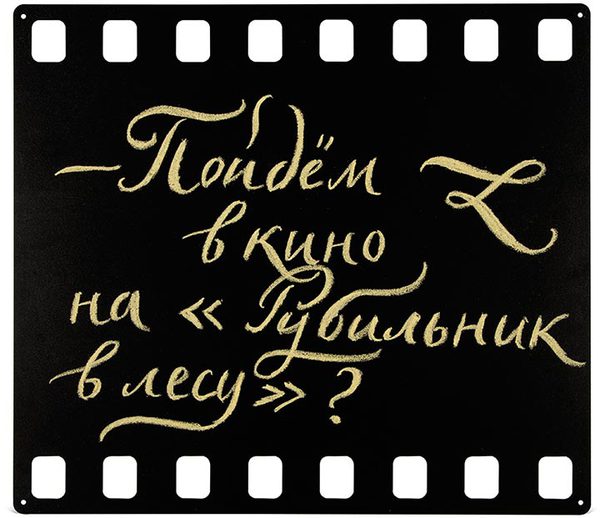 — Пойдём
в кино
на « Рубильник
в лесу» ?